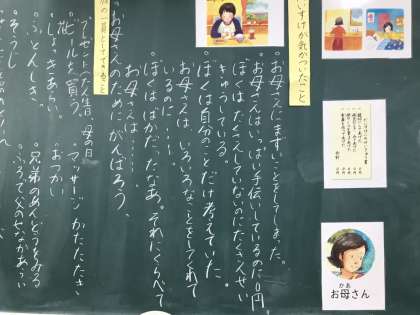 だいすけが気がついたこと
・お母さんにまずいことをしてしまった。
・お母さんはいっぱい手伝いしているのに0円。
ぼくはたくさんしていないのにたくさんせい
きゅうしている。
・ぼくは自分のことだけ考えていた。
・お母さんは、いろいろなことをしてくれて
いるのに・・・・。
・ぼくはばかだったなあ。それにくらべて
お母さんは・・・・・。
・お母さんのためにがんばろう。
の一員としてできること
・プレゼント(たん生日、母の日)
・花 ・マッサージ ・かたたたき
・ビールを買う。 ・おつかい
・しょっきあらい。
・ふとんしき。 ・兄弟のめんどうをみる
・そうじ ・ふろで父のせなかあらい
かあ
お母さん